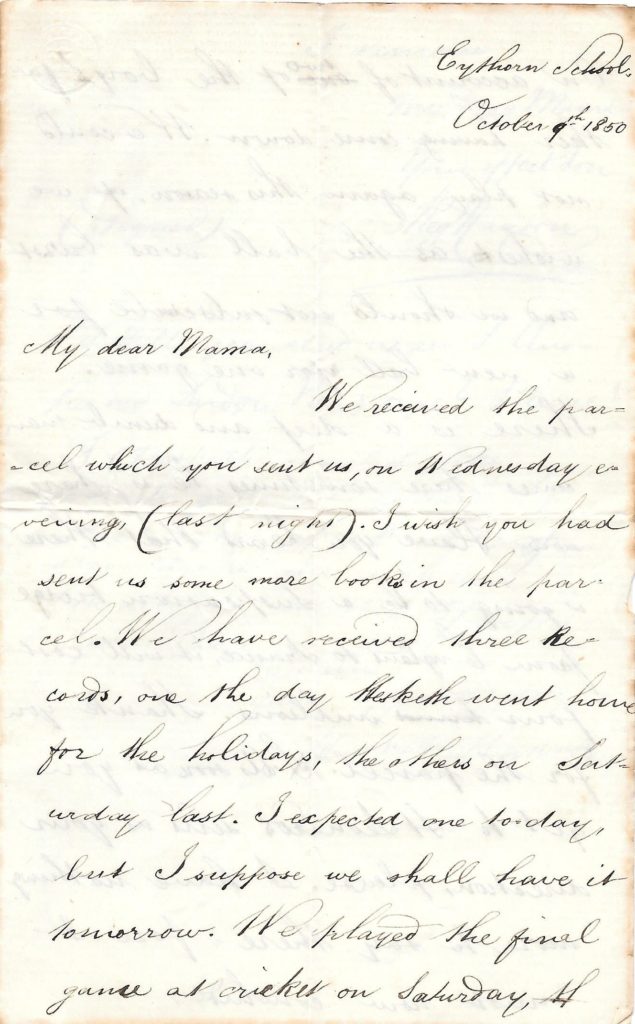 Eythorn School,
October 9th 1850
My dear Mama,
We received the par-
-cel which you sent us, on Wednesday e-
vening, (last night). I wish you had
sent us some more books in the par-
cel. We have received three Re-
cords, one the day Hesketh went home
for the holidays, the others on Sat-
urday last. I expected one to-day,
but I suppose we shall have it
tomorrow. We played the final
game at cricket on Saturday,